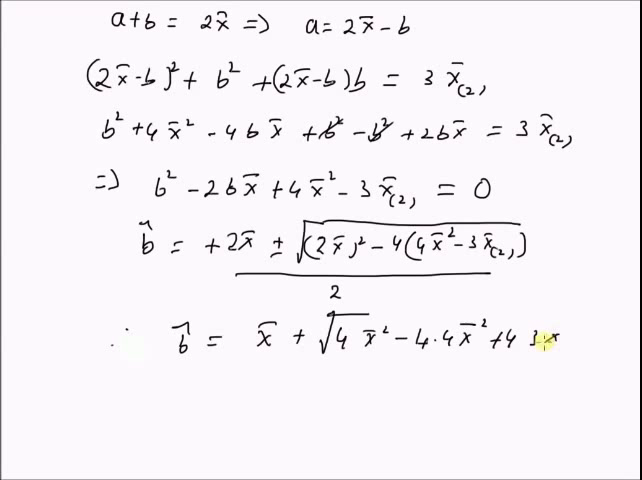 a+b = 2x̄ => a = 2x̄ - b
(2x̄-b)² + b² + (2x̄-b)b = 3 x̄₍₂₎
b² + 4x̄² - 4bx̄ + b² - b² + 2bx̄ = 3 x̄₍₂₎
=> b² - 2bx̄ + 4x̄² - 3x̄₍₂₎ = 0
b̂ = +2x̄ ± √((2x̄)² - 4(4x̄² - 3x̄₍₂₎))
2
∴ b̂ = x̄ + √(4x̄² - 4·4x̄² + 4 3x